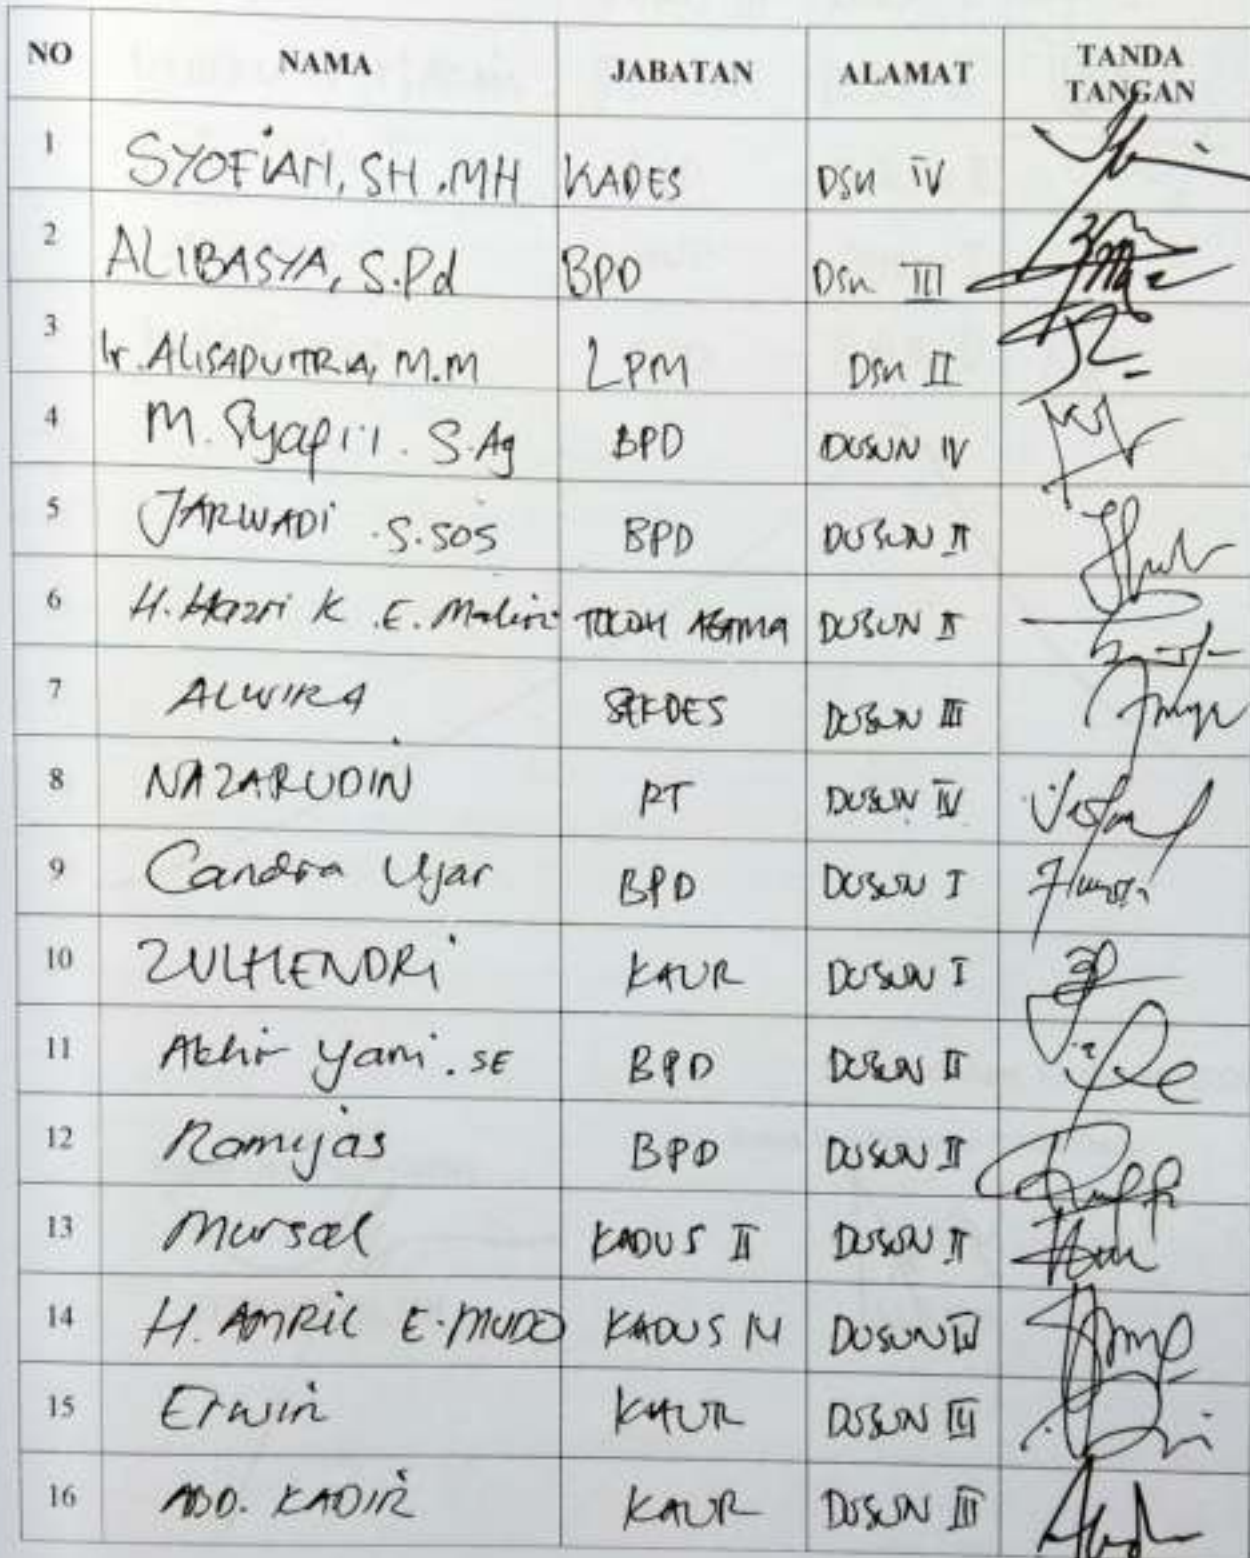 NO NAMA JABATAN ALAMAT TANDA TANGAN
1 SYOFIAN, SH.MH KADES DSN IV
2 ALIBASYA, S.Pd BPD Dsn III
3 Ir. ALISAPUTRA, M.M LPM Dsn II
4 M. Syafii. S.Ag BPD DUSUN IV
5 JARWADI S.SOS BPD DUSUN II
6 H. Hazri K. E. Malin TOKOH AGAMA DUSUN II
7 ALWIRA SEKDES DUSUN III
8 NAZARUDIN RT DUSUN IV
9 Candra Ujar BPD DUSUN I
10 ZULHENDRI KAUR DUSUN I
11 Akhir Yani. SE BPD DUSUN II
12 Ramijas BPD DUSUN II
13 Mursal KADUS II DUSUN II
14 H. AMRIL E. MUDO KADUS DUSUN
15 Erwin KAUR DUSUN III
16 ABD. KADIR KAUR DUSUN III